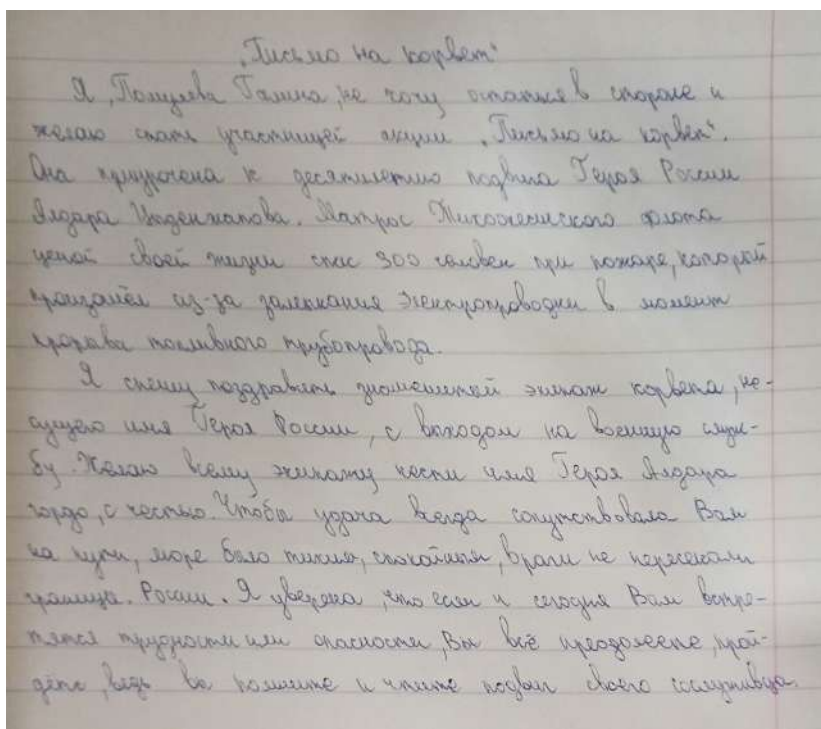 „Письмо на корвет“
Я, Полуева Галина, не хочу остаться в стороне и
желаю стать участницей акции „Письмо на корвет“.
Она приурочена к десятилетию подвига Героя России
Алдара Цыденжапова. Матрос Тихоокеанского флота
ценой своей жизни спас 300 человек при пожаре, который
произошёл из-за замыкания электропроводки в момент
прорыва топливного трубопровода.
Я спешу поздравить знаменитый экипаж корвета, не-
сущего имя Героя России, с выходом на военную служ-
бу. Желаю всему экипажу нести имя Героя Алдара
гордо, с честью. Чтобы удача всегда сопутствовала Вам
на пути, море было тихим, спокойным, враги не пересекали
границы. России. Я уверена, что если и сегодня Вам встре-
тятся трудности или опасности, Вы всё преодолеете, прой-
дёте, ведь вы помните и чтите подвиг своего сослуживца.